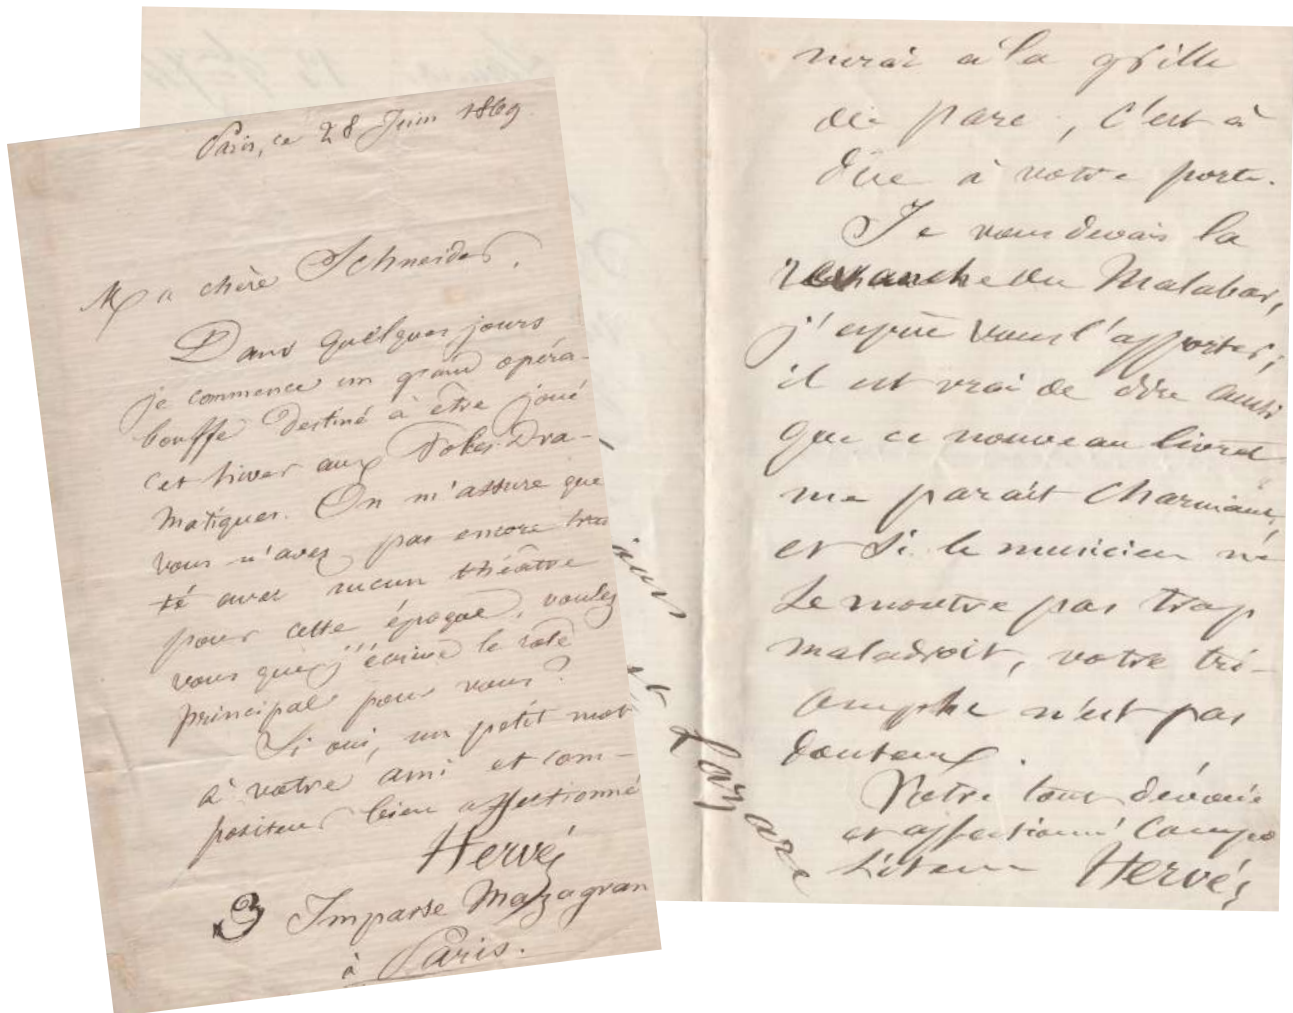 Paris, ce 28 Juin 1869.
Ma chère Schneider,
Dans quelques jours
je commence un grand opéra-
bouffe destiné à être joué
cet hiver aux Folies-Dra-
matiques. On m'assure que
vous n'avez pas encore trai
té avec aucun théâtre
pour cette époque, voulez
vous que j'écrive le role
principal pour vous?
Si oui, un petit mot
à votre ami et com-
positeur bien affectionné
Hervé
3 Impasse Mazagran
à Paris.
nerai à la grille
du parc, c'est à
dire à votre porte.
Je vous devais la
revanche du Malabar,
j'espère vous l'apporter;
il est vrai de dire aussi
que ce nouveau livret
me parait charmant,
et si le musicien ne
se montre pas trop
maladroit, votre tri-
omphe n'est pas
douteux.
Votre tout dévoué
et affectionné compo
siteur Hervé
Lazare